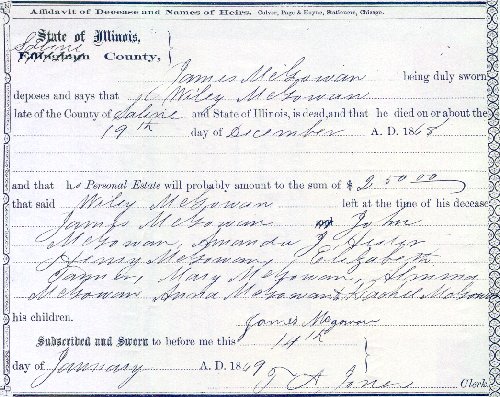 Affidavit of Decease and Names of Heirs. Culver, Page & Hoyne, Stationers, Chicago.
State of Illinois,
Saline
Effingham County,
James McGowan being duly sworn
deposes and says that Wiley McGowan
late of the County of Saline and State of Illinois, is dead, and that he died on or about the
19th day of December A. D. 1868
and that his Personal Estate will probably amount to the sum of $ 250 00
that said Wiley McGowan left at the time of his decease
James McGowan John
McGowan, Amanda J.
Henry McGowan, Elizabeth
Mary McGowan,
McGowan Anna McGowan & David McGowan
his children.
James McGowan
Subscribed and Sworn to before me this 14th
day of January A. D. 1869
T A Jones Clerk